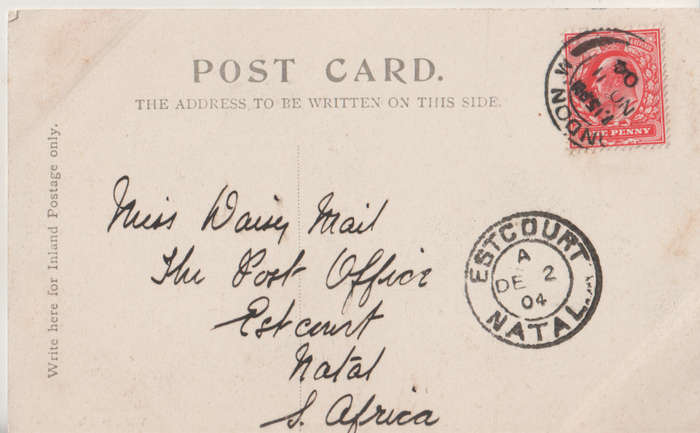 POST CARD.
THE ADDRESS TO BE WRITTEN ON THIS SIDE.
Write here for Inland Postage only.
ONE PENNY
LONDON. W
Miss Daisy Mail
The Post Office
Estcourt
Natal
S. Africa
ESTCOURT
A
DE 2
04
NATAL